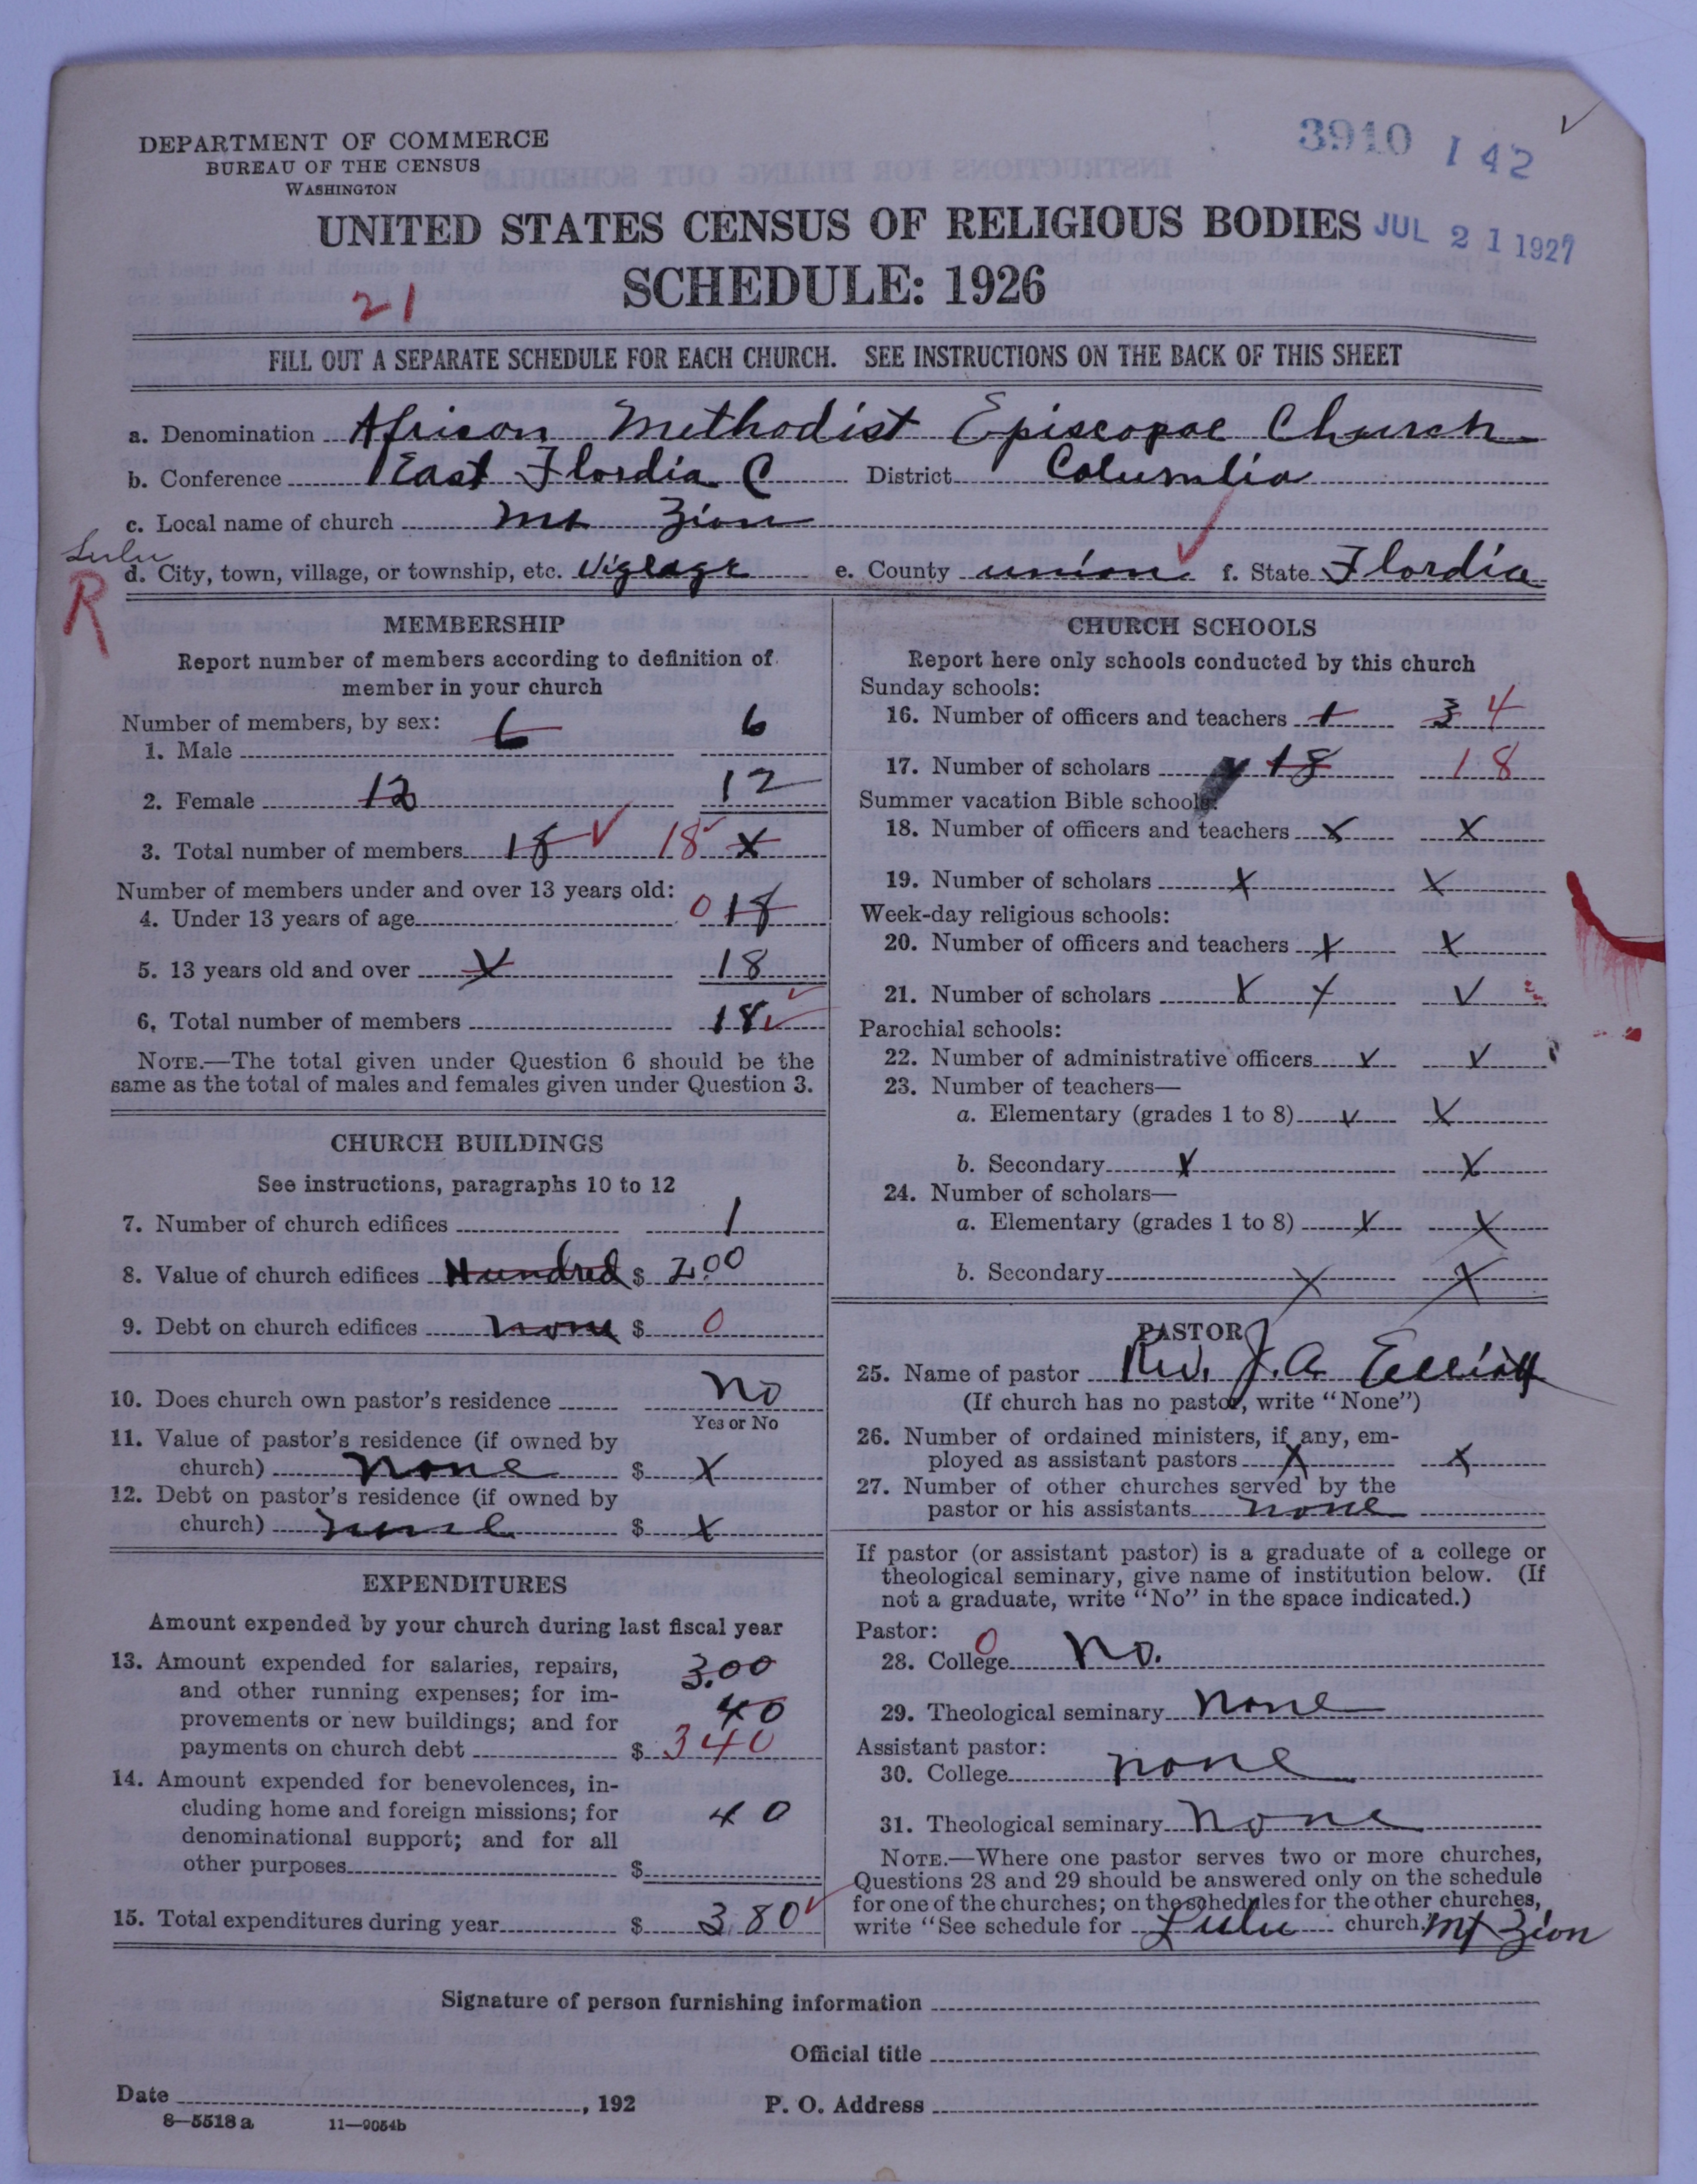 DEPARTMENT OF COMMERCE
BUREAU OF THE CENSUS
WASHINGTON
3910 142
UNITED STATES CENSUS OF RELIGIOUS BODIES
JUL 21 1927
SCHEDULE: 1926
21
FILL OUT A SEPARATE SCHEDULE FOR EACH CHURCH. SEE INSTRUCTIONS ON THE BACK OF THIS SHEET
a. Denomination African Methodist Episcopal Church
b. Conference East Flordia C District Columbia
c. Local name of church Mt Zion
Lulu
d. City, town, village, or township, etc. Viglage e. County union f. State Flordia
R
MEMBERSHIP
Report number of members according to definition of member in your church
Number of members, by sex:
1. Male 6 6
2. Female 12 12
3. Total number of members 18 18 x
Number of members under and over 13 years old:
4. Under 13 years of age 0 18
5. 13 years old and over x 18
6. Total number of members 18
NOTE.—The total given under Question 6 should be the
same as the total of males and females given under Question 3.
CHURCH BUILDINGS
See instructions, paragraphs 10 to 12
7. Number of church edifices 1
8. Value of church edifices Hundred $ 2.00
9. Debt on church edifices none $ 0
10. Does church own pastor's residence no
Yes or No
11. Value of pastor's residence (if owned by
church) none $ x
12. Debt on pastor's residence (if owned by
church) none $ x
EXPENDITURES
Amount expended by your church during last fiscal year
13. Amount expended for salaries, repairs, 3.00
and other running expenses; for im-
provements or new buildings; and for 40
payments on church debt $ 340
14. Amount expended for benevolences, in-
cluding home and foreign missions; for 40
denominational support; and for all
other purposes $
15. Total expenditures during year $ 380
CHURCH SCHOOLS
Report here only schools conducted by this church
Sunday schools:
16. Number of officers and teachers 1 3 4
17. Number of scholars 18 18
Summer vacation Bible schools:
18. Number of officers and teachers x x
19. Number of scholars x x
Week-day religious schools:
20. Number of officers and teachers x x
21. Number of scholars x x x
Parochial schools:
22. Number of administrative officers x x
23. Number of teachers—
a. Elementary (grades 1 to 8) x x
b. Secondary x x
24. Number of scholars—
a. Elementary (grades 1 to 8) x x
b. Secondary x x
PASTOR
25. Name of pastor Rev. J. A. Elliott
(If church has no pastor, write "None")
26. Number of ordained ministers, if any, em-
ployed as assistant pastors x x
27. Number of other churches served by the
pastor or his assistants none
If pastor (or assistant pastor) is a graduate of a college or
theological seminary, give name of institution below. (If
not a graduate, write "No" in the space indicated.)
Pastor: 0
28. College No.
29. Theological seminary none
Assistant pastor:
30. College none
31. Theological seminary none
NOTE.—Where one pastor serves two or more churches,
Questions 28 and 29 should be answered only on the schedule
for one of the churches; on the schedules for the other churches,
write "See schedule for Lulu church." Mt Zion
Signature of person furnishing information
Official title
Date , 192 P. O. Address
8—5518 a 11—9054b